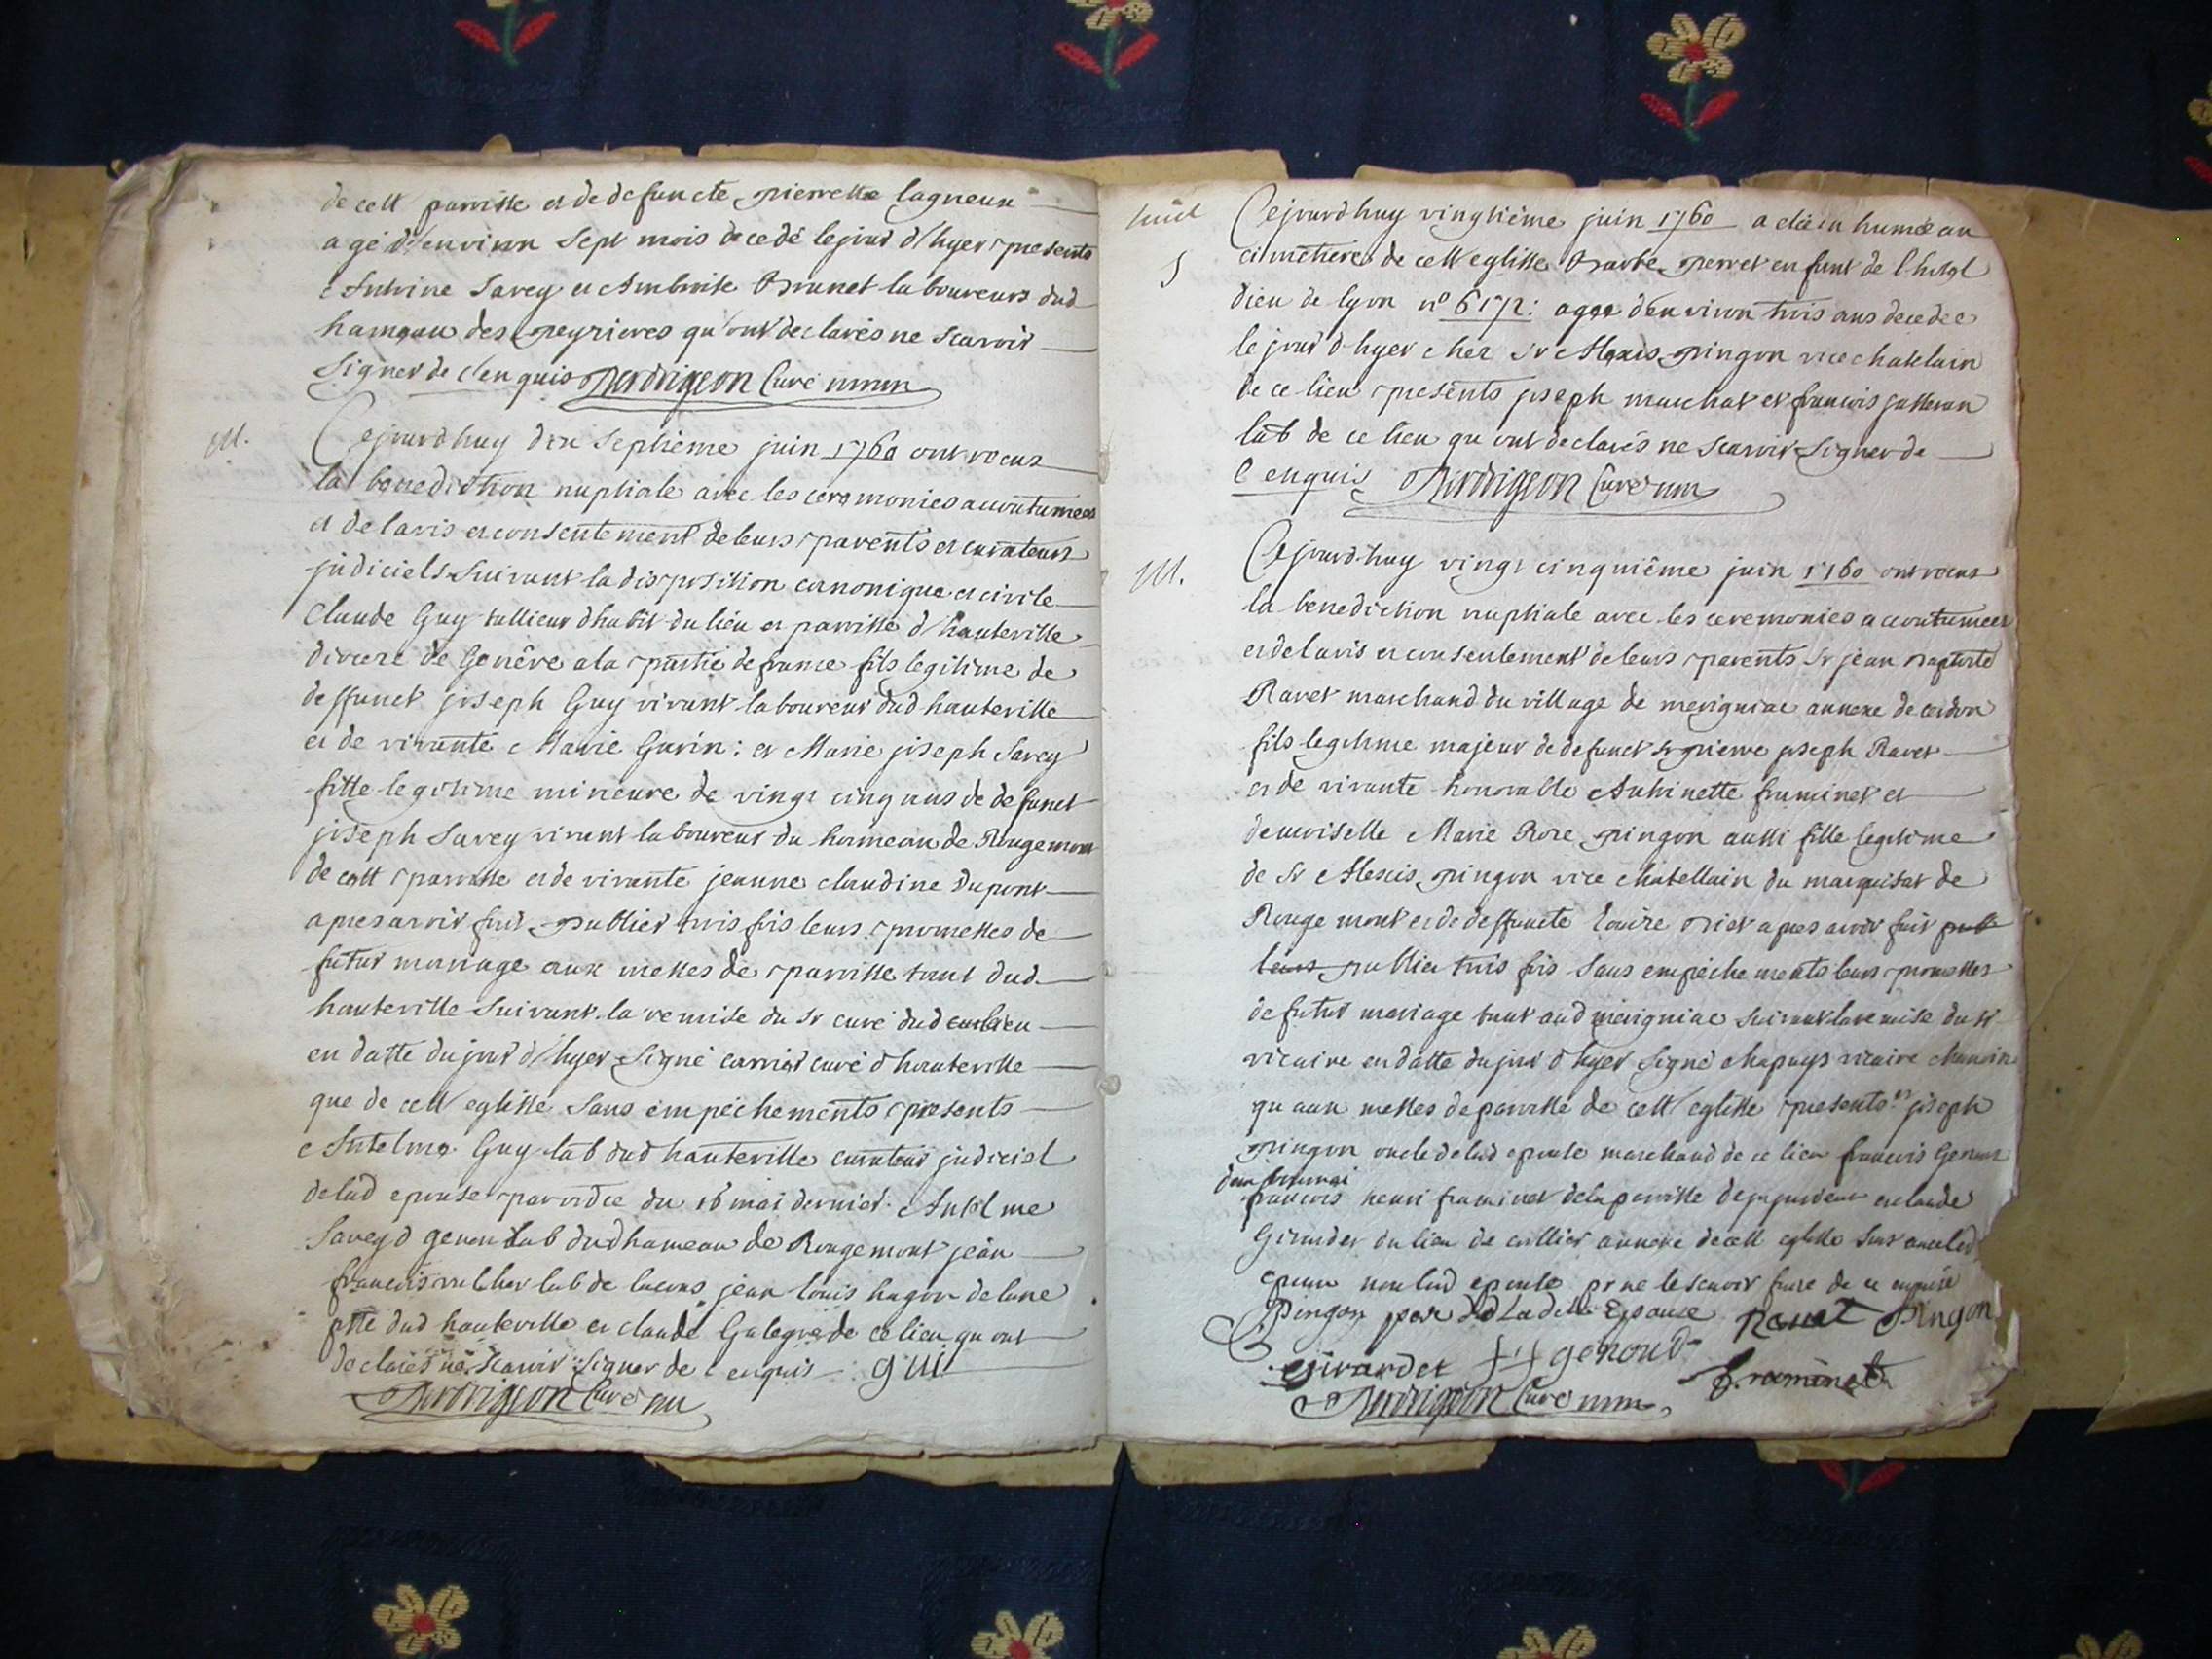 de cett parroisse et de defuncte pierrette lagneux
agé d'environ sept mois decedé le jour d'hyer presents
Antoine Savey et Ambroise Brunet laboureurs dud
hameau des peyrieres qu'ont declarés ne scavoir
signer de l'enquis Perdrigeon Curé
M.
Cejourd'huy dix septieme juin 1760 ont recus
la benediction nuptiale avec les ceremonies accoutumees
et de lavis et consentement de leurs parents et curateurs
judiciels suivant la disposition canonique et civile
Claude Guy tallieur dhabit du lieu et parroisse d'hauteville
diocese de Genêve a la partie de france fils legitime de
deffunct joseph Guy vivant laboureur dud hauteville
et de vivante Marie Gurin : et Marie joseph Savey
fille legitime mineure de vingt cinq ans de defunct
joseph Savey vivant laboureur du hameau de Rougemont
de cett parroisse et de vivante jeanne claudine Dupont
apres avoir fait publier trois fois leurs promesses de
futur mariage aux messes de parroisse tant dud
hauteville suivant la remise du sr curé dud lieu
en datte du jour d'hyer signé curé d'hauteville
que de cett eglisse sans empechements presents
Antelme Guy lab dud hauteville curateur judiciel
de lad epouse par ordce du 16 mai dernier Antelme
Savey lab dud hameau de Rougemont jean
francois lab de jean louis hugon de lane
psse dud hauteville et claude de ce lieu qu ont
declarés ne scavoir signer de l enquis gui
Perdrigeon Curé
5
Cejourd'huy vingtiéme juin 1760 a eté in humée au
cimetiere de cett eglisse Barbe perret enfant de l'hotel
dieu de lyon no 6172: agee d'environ trois ans decedee
le jour d'hyer chez sr Alexis pingon vice chatelain
de ce lieu presents joseph marchat et francois
lab de ce lieu qu ont declarés ne scavoir signer de
l enquis Perdrigeon Curé
M.
Cejourd'huy vingt cinquiême juin 1760 ont recus
la benediction nuptiale avec les ceremonies accoutumees
et de lavis et consentement de leurs parents sr jean baptiste
Ravet marchand du village de merigniac annexe de cerdon
fils legitime majeur de defunct sr pierre joseph Ravet
et de vivante honorable Anthoinette fruminet et
demoiselle Marie Rose pingon aussi fille legitime
de sr Alexis pingon vice chatellain du marquisat de
Rouge mont et de deffuncte apres avoir fait publ
leurs publier trois fois sans empechements leurs promesses
de futur mariage tant aud merigniac suivant la remise du sr
vicaire en datte du jour d'hyer signé chapuys vicaire
qu aux messes de parroisse de cett eglisse presents joseph
pingon oncle de lad epouse marchand de ce lieu francois
francois henri fruminet de la parroisse de et claude
Girardet du lieu de annexe de cett eglisse
epoux non lad epouse pr ne le scavoir faire de ce enquise
Pingon pere de La dite Epouse Ravet Pingon
girardet genoud fruminet
Perdrigeon Curé